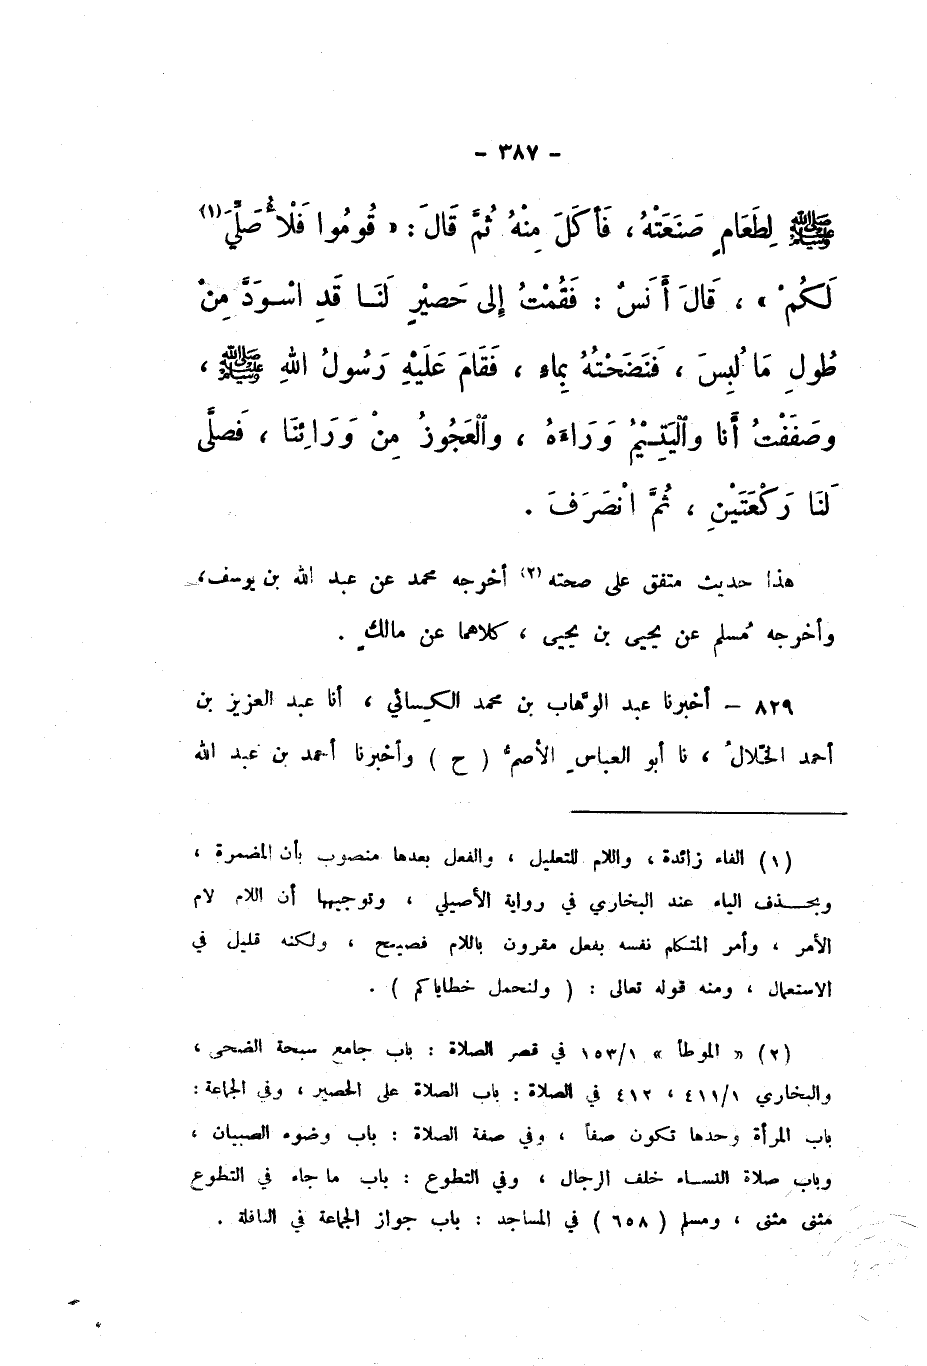 - ٣٨٧ -
ﷺ لِطَعَامٍ صَنَعَتْهُ ، فَأَكَلَ مِنْهُ ثُمَّ قَالَ : « قُومُوا فَلْأُصَلِّيَ (١)
لَكُمْ » ، قَالَ أَنَسٌ : فَقُمْتُ إِلى حَصيْرٍ لَنَا قَدِ اسْوَدَّ مِنْ
طُولِ مَا لُبِسَ ، فَنَضَحْتُهُ بِمَاءٍ ، فَقَامَ عَلَيْهِ رَسُولُ اللهِ ﷺ ،
وصَفَفْتُ أَنا واليَتِيْمُ وَرَاءَهُ ، والعَجُوزُ مِنْ وَرَائِنَا ، فَصلَّى
لَنَا رَكْعَتَيْنِ ، ثُمَّ انْصَرَفَ .
هذا حديث متفق على صحته (٢) أخرجه محمد عن عبد الله بن يوسف ،
وأخرجه مُسلم عن يحيى بن يحيى ، كلاهما عن مالكٍ .
٨٢٩ – أخبرنا عبد الوَهاب بن محمد الكِسائي ، أنا عبد العزيز بن
أحمد الخَلالُ ، نا أبو العباسِ الأصمُ ( ح ) وأخبرنا أحمد بن عبد الله
(١) الفاء زائدة ، واللام للتعليل ، والفعل بعدها منصوب بأن المضمرة ،
وبحذف الياء عند البخاري في رواية الأصيلي ، وتوجيهها أن اللام لام
الأمر ، وأمر المتكلم نفسه بفعل مقرون باللام فصيح ، ولكنه قليل في
الاستعمال ، ومنه قوله تعالى : ( ولنحمل خطاياكم ) .
(٢) « الموطأ » ١٥٣/١ في قصر الصلاة : باب جامع سبحة الضحى ،
والبخاري ٤١١/١ ، ٤١٢ في الصلاة : باب الصلاة على الحصير ، وفي الجماعة :
باب المرأة وحدها تكون صفاً ، وفي صفة الصلاة : باب وضوء الصبيان ،
وباب صلاة النساء خلف الرجال ، وفي التطوع : باب ما جاء في التطوع
مثنى مثنى ، ومسلم ( ٦٥٨ ) في المساجد : باب جواز الجماعة في النافلة .